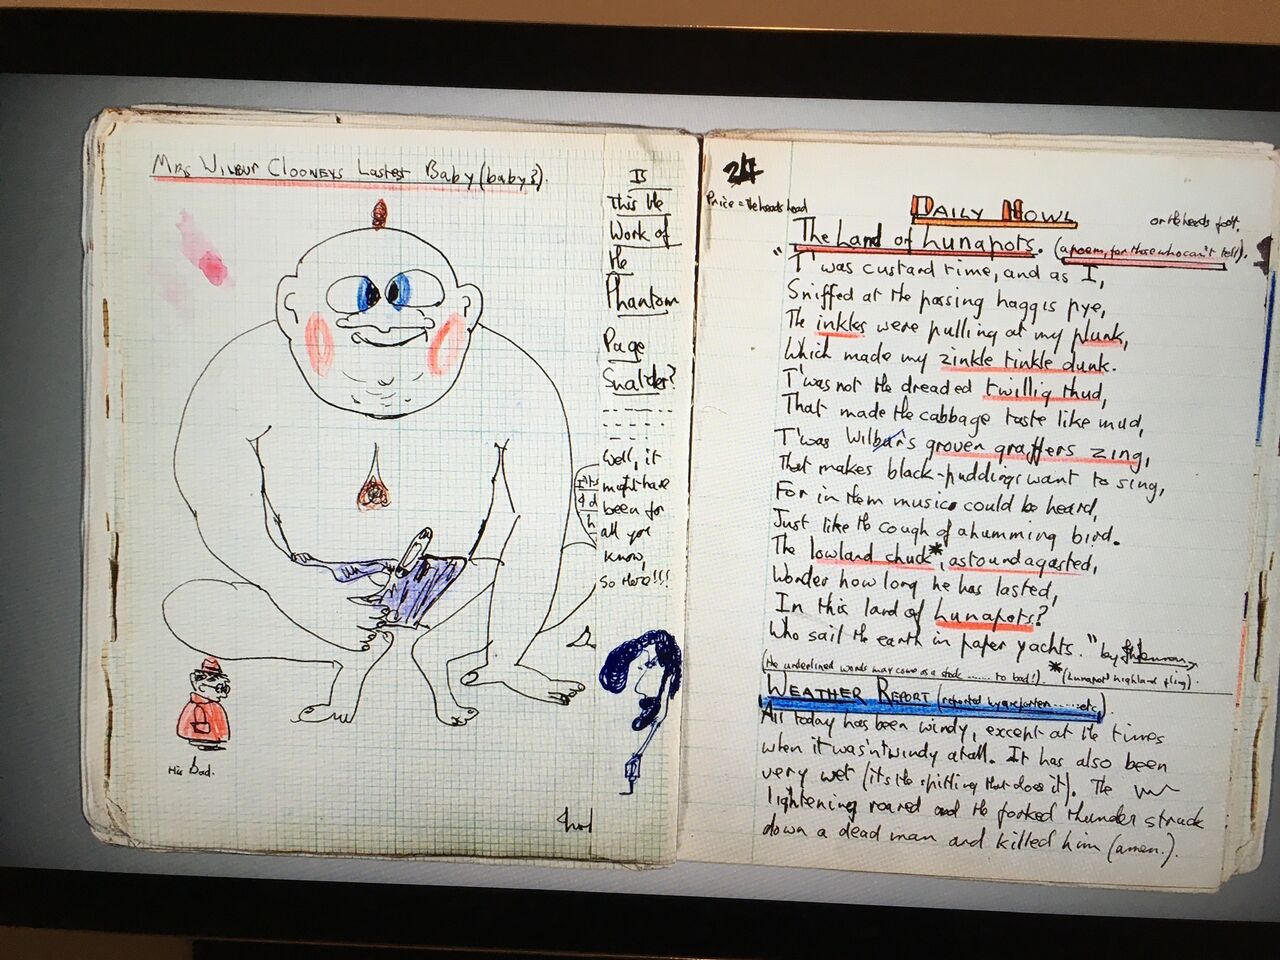 Mrs Wilbur Clooneys Lastest Baby (baby?).
Is
This the
Work of
the
Phantom
Page
Snalder?
Well, it
might have
been for
all you
know,
So there!!!
His Dad.
24
Price = the heads head
DAILY HOWL
or the heads foot.
The Land of Lunapots. (a poem, for those who can't tell).
"T'was custard time, and as I,
Sniffed at the passing haggis pye,
The inkles were pulling at my plunk,
Which made my zinkle tinkle dunk.
T'was not the dreaded twillig thud,
That made the cabbage taste like mud,
T'was Wilbur's groven graffers zing,
That makes black-puddings want to sing,
For in them music could be heard,
Just like the cough of a humming bird.
The lowland chuck*, astoundagasted,
Wonder how long he has lasted,
In this land of Lunapots?
Who sail the earth in paper yachts." by
(the underlined words may come as a shock ...... to bad!) *(Lunapot highland fling).
WEATHER REPORT (reported by a reporter.....etc)
All today has been windy, except at the times
when it wasn't windy atall. It has also been
very wet (its the spitting that does it). The
lightening roared and the forked thunder struck
down a dead man and killed him (amen.).